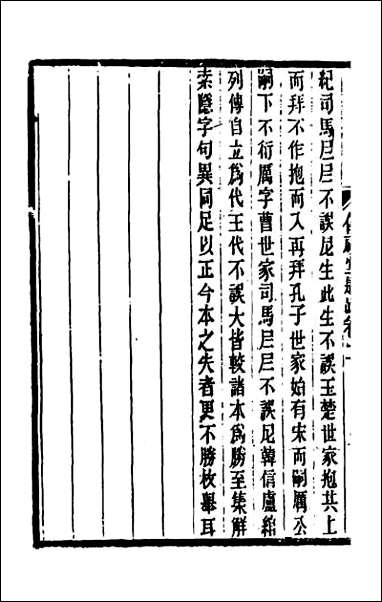 紀司馬𡰥𡰥不誤尼生此生不誤王楚世家抱共上
而拜不作抱而入再拜孔子世家始有宋而嗣厲公
嗣下不衍厲字曹世家司馬𡰥𡰥不誤尼韓信盧綰
列傳自立爲代王代不誤大皆較諸本爲勝至集解
索隱字句異同足以正今本之失者更不勝枚舉耳